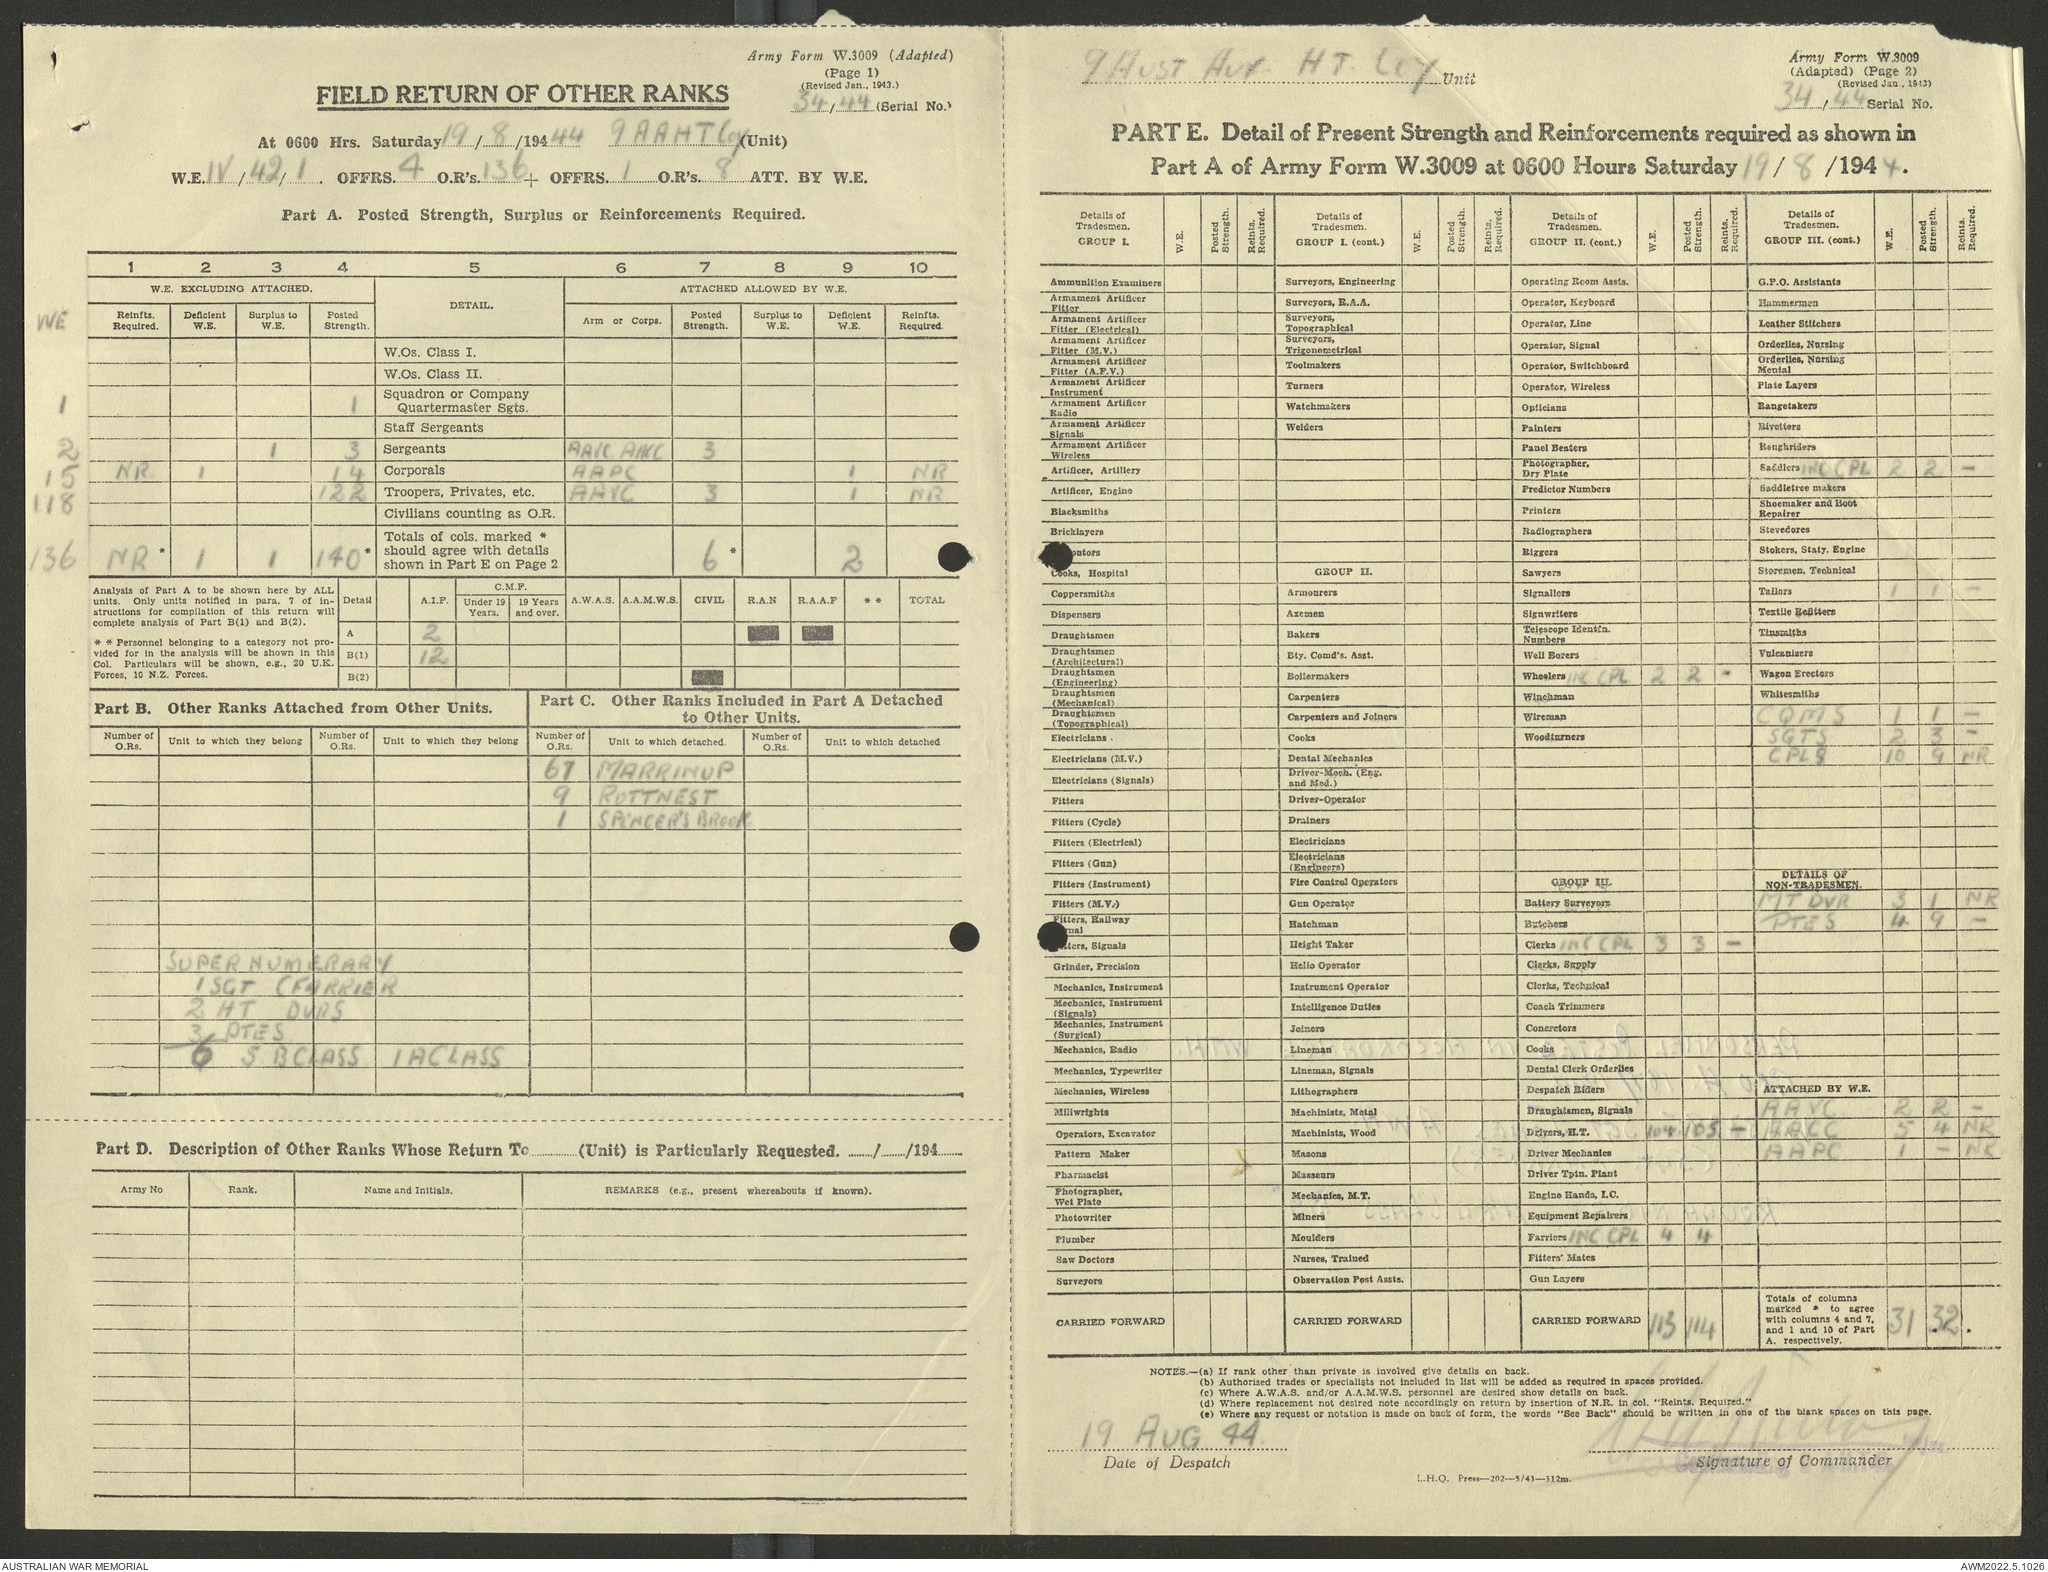 Army Form W.3009 (Adapted)
(Page 1)
(Revised Jan., 1943.)
FIELD RETURN OF OTHER RANKS
34/44 (Serial No.)
At 0600 Hrs. Saturday 19/8/1944 44 9 AAHT Coy (Unit)
W.E. IV/42/1. OFFRS. 4 O.R's. 136 + OFFRS. 1 O.R's. 8 ATT. BY W.E.
Part A. Posted Strength, Surplus or Reinforcements Required.
1 2 3 4 5 6 7 8 9 10
W.E. EXCLUDING ATTACHED. DETAIL. ATTACHED ALLOWED BY W.E.
WE Reinfts. Required. Deficient W.E. Surplus to W.E. Posted Strength. Arm or Corps. Posted Strength. Surplus to W.E. Deficient W.E. Reinfts. Required.
W.Os. Class I.
W.Os. Class II.
1 1 Squadron or Company Quartermaster Sgts.
Staff Sergeants
2 1 3 Sergeants AAVC AACC 3
15 NR 1 14 Corporals AAPC 1 NR
118 122 Troopers, Privates, etc. AAVC 3 1 NR
Civilians counting as O.R.
136 NR * 1 1 140 * Totals of cols. marked * should agree with details shown in Part E on Page 2 6 * 2
Analysis of Part A to be shown here by ALL units. Only units notified in para. 7 of instructions for compilation of this return will complete analysis of Part B(1) and B(2).
* * Personnel belonging to a category not provided for in the analysis will be shown in this Col. Particulars will be shown, e.g., 20 U.K. Forces, 10 N.Z. Forces.
Detail A.I.F. C.M.F. Under 19 Years. 19 Years and over. A.W.A.S. A.A.M.W.S. CIVIL R.A.N R.A.A.F * * TOTAL
A 2
B(1) 12
B(2)
Part B. Other Ranks Attached from Other Units.
Part C. Other Ranks Included in Part A Detached to Other Units.
Number of O.Rs. Unit to which they belong Number of O.Rs. Unit to which they belong Number of O.Rs. Unit to which detached. Number of O.Rs. Unit to which detached
67 MARRINUP
9 ROTTNEST
1 SPENCER'S BROOK
SUPERNUMERARY
1 SGT (FARRIER
2 HT DVRS
3 PTES
6 5 B CLASS 1 A CLASS
Part D. Description of Other Ranks Whose Return To ........ (Unit) is Particularly Requested. ....../....../194......
Army No Rank. Name and Initials. REMARKS (e.g., present whereabouts if known).
9 Aust Aux HT. Coy Unit
Army Form W.3009
(Adapted) (Page 2)
(Revised Jan., 1943)
34/44 Serial No.
PART E. Detail of Present Strength and Reinforcements required as shown in
Part A of Army Form W.3009 at 0600 Hours Saturday 19/8/1944.
Details of Tradesmen. GROUP I. W.E. Posted Strength. Reints. Required.
Ammunition Examiners
Armament Artificer Fitter
Armament Artificer Fitter (Electrical)
Armament Artificer Fitter (M.V.)
Armament Artificer Fitter (A.F.V.)
Armament Artificer Instrument
Armament Artificer Radio
Armament Artificer Signals
Armament Artificer Wireless
Artificer, Artillery
Artificer, Engine
Blacksmiths
Bricklayers
Cooks, Hospital
Coppersmiths
Dispensers
Draughtsmen
Draughtsmen (Architectural)
Draughtsmen (Engineering)
Draughtsmen (Mechanical)
Draughtsmen (Topographical)
Electricians
Electricians (M.V.)
Electricians (Signals)
Fitters
Fitters (Cycle)
Fitters (Electrical)
Fitters (Gun)
Fitters (Instrument)
Fitters (M.V.)
Fitters, Railway
Grinder, Precision
Mechanics, Instrument
Mechanics, Instrument (Signals)
Mechanics, Instrument (Surgical)
Mechanics, Radio
Mechanics, Typewriter
Mechanics, Wireless
Millwrights
Operators, Excavator
Pattern Maker
Pharmacist
Photographer, Wet Plate
Photowriter
Plumber
Saw Doctors
Surveyors
CARRIED FORWARD
Details of Tradesmen. GROUP I. (cont.) W.E. Posted Strength. Reints. Required.
Surveyors, Engineering
Surveyors, R.A.A.
Surveyors, Topographical
Surveyors, Trigonometrical
Toolmakers
Turners
Watchmakers
Welders
GROUP II.
Armourers
Axemen
Bakers
Bty. Comd's. Asst.
Boilermakers
Carpenters
Carpenters and Joiners
Cooks
Dental Mechanics
Driver-Mech. (Eng. and Med.)
Driver-Operator
Drainers
Electricians
Electricians (Engineers)
Fire Control Operators
Gun Operator
Hatchman
Height Taker
Helio Operator
Instrument Operator
Intelligence Duties
Joiners
Lineman
Lineman, Signals
Lithographers
Machinists, Metal
Machinists, Wood
Masons
Masseurs
Mechanics, M.T.
Miners
Moulders
Nurses, Trained
Observation Post Assts.
CARRIED FORWARD
Details of Tradesmen. GROUP II. (cont.) W.E. Posted Strength. Reints. Required.
Operating Room Assts.
Operator, Keyboard
Operator, Line
Operator, Signal
Operator, Switchboard
Operator, Wireless
Opticians
Painters
Panel Beaters
Photographer, Dry Plate
Predictor Numbers
Printers
Radiographers
Riggers
Sawyers
Signallers
Signwriters
Telescope Identfn. Numbers
Well Borers
Wheelers INC CPL 2 2 -
Winchman
Wireman
Woodturners
GROUP III.
Battery Surveyors
Butchers
Clerks INC CPL 3 3 -
Clerks, Supply
Clerks, Technical
Coach Trimmers
Concretors
Cooks
Dental Clerk Orderlies
Despatch Riders
Draughtsmen, Signals
Drivers, H.T. 104 105 -
Driver Mechanics
Driver Tptn. Plant
Engine Hands, I.C.
Equipment Repairers
Farriers INC CPL 4 4
Fitters' Mates
Gun Layers
CARRIED FORWARD 113 114
Details of Tradesmen. GROUP III. (cont.) W.E. Posted Strength. Reints. Required.
G.P.O. Assistants
Hammermen
Leather Stitchers
Orderlies, Nursing
Orderlies, Nursing Mental
Plate Layers
Rangetakers
Rivetters
Roughriders
Saddlers INC CPL 2 2 -
Saddletree makers
Shoemaker and Boot Repairer
Stevedores
Stokers, Staty. Engine
Storemen, Technical
Tailors 1 1 -
Textile Refitters
Tinsmiths
Vulcanizers
Wagon Erectors
Whitesmiths
CQMS 1 1 -
SGTS 2 3 -
CPLS 10 9 NR
DETAILS OF NON-TRADESMEN.
MT DVR 3 1 NR
PTES 4 9 -
ATTACHED BY W.E.
AAVC 2 2 -
AACC 5 4 NR
AAPC 1 - NR
Totals of columns marked * to agree with columns 4 and 7, and 1 and 10 of Part A. respectively. 31 32
NOTES.—(a) If rank other than private is involved give details on back.
(b) Authorised trades or specialists not included in list will be added as required in spaces provided.
(c) Where A.W.A.S. and/or A.A.M.W.S. personnel are desired show details on back.
(d) Where replacement not desired note accordingly on return by insertion of N.R. in col. "Reints. Required."
(e) Where any request or notation is made on back of form, the words "See Back" should be written in one of the blank spaces on this page.
19 AUG 44
Date of Despatch
Signature of Commander
L.H.Q. Press—202—5/43—312m.
AUSTRALIAN WAR MEMORIAL
AWM2022.5.1026